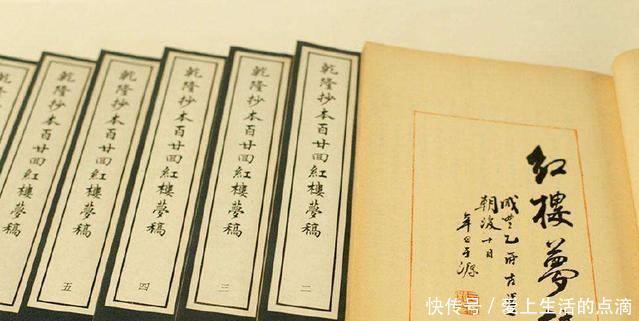 紅樓夢
咸豐乙卯古
朝後十日
于源
乾隆抄本百廿回紅樓夢稿 二
乾隆抄本百廿回紅樓夢稿 三
乾隆抄本百廿回紅樓夢稿 四
乾隆抄本百廿回紅樓夢稿 五
快传号 / 爱上生活的点滴